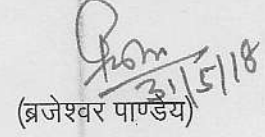 31/5/18
(ब्रजेश्वर पाण्डेय)